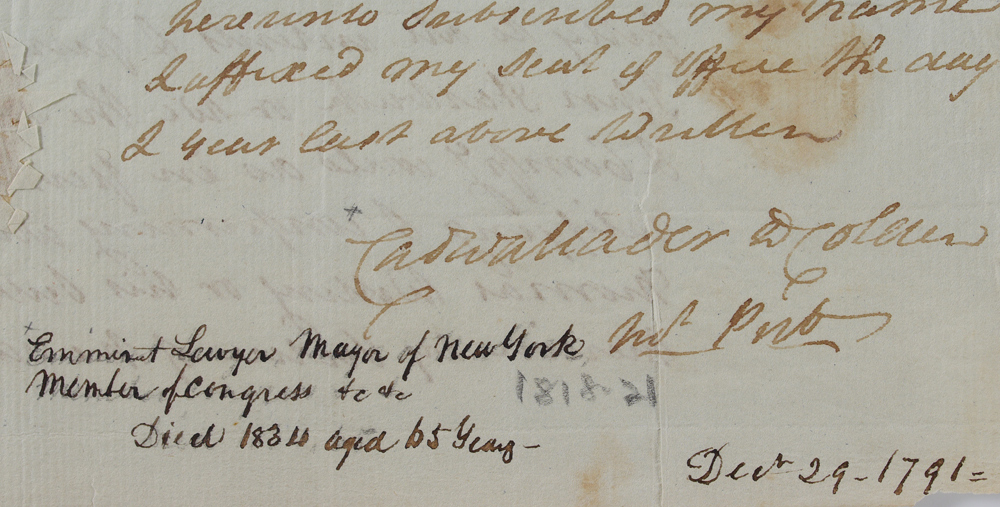 hereunto Subscribed my name
& affixed my Seal of Office the day
& year last above Written
Cadwallader D Colden
Not. Pub
Emminet Lawyer Mayor of New York
Member of Congress &c &c
Died 1834 aged 65 Years -
Decr 29 - 1791 =